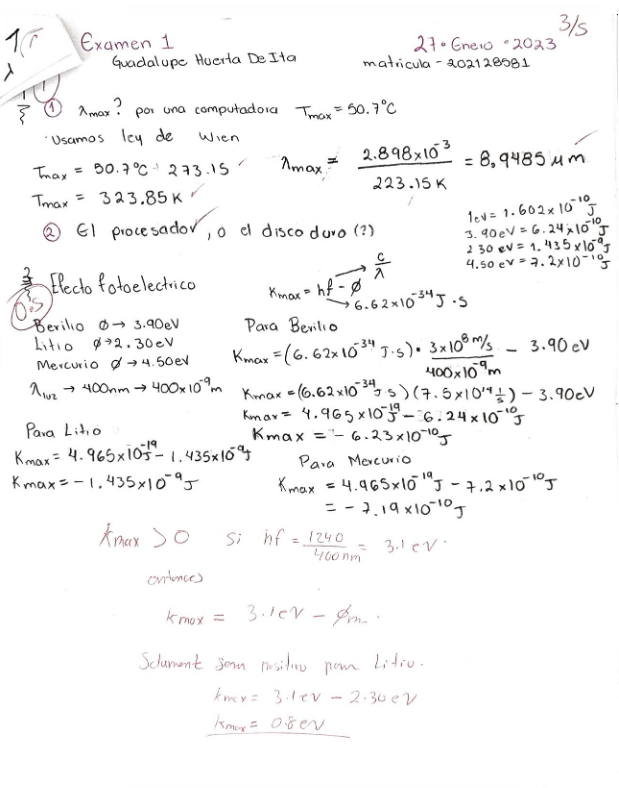 3/5
Examen 1
27 · Enero · 2023
Guadalupe Huerta De Ita
matricula - 202128581
① λmax? por una computadora Tmax = 50.7°C
· Usamos ley de Wien
Tmax = 50.7°C + 273.15
λmax = 2.898x10⁻³ / 223.15 K = 8,9485 μm
Tmax = 323.85 K
② El procesador, o el disco duro (?)
1eV = 1.602x10⁻¹⁰ J
3.90eV = 6.24x10⁻¹⁰ J
2 30 eV = 1.435x10⁻⁹ J
4.50 eV = 7.2x10⁻¹⁰ J
3 Efecto fotoelectrico
0.5
c/λ
Kmax = hf - ϕ
6.62x10⁻³⁴ J·s
Berilio ϕ → 3.90eV
Litio ϕ → 2.30eV
Mercurio ϕ → 4.50eV
λluz → 400nm → 400x10⁻⁹m
Para Berilio
Kmax = (6.62x10⁻³⁴ J·s) · 3x10⁸ m/s / 400x10⁻⁹m - 3.90 eV
Kmax = (6.62x10⁻³⁴ J s)(7.5x10¹⁴ 1/s) - 3.90eV
Kmax = 4.965x10⁻¹⁹ J - 6.24x10⁻¹⁰ J
Kmax = - 6.23x10⁻¹⁰ J
Para Litio
Kmax = 4.965x10⁻¹⁹ J - 1.435x10⁻⁹ J
Kmax = - 1.435x10⁻⁹ J
Para Mercurio
Kmax = 4.965x10⁻¹⁹ J - 7.2x10⁻¹⁰ J
= - 7.19x10⁻¹⁰ J
Kmax > 0 si hf = 1240 / 400 nm = 3.1 eV.
entonces
Kmax = 3.1eV - ϕm.
Solament sera positivo para Litio.
Kmax = 3.1eV - 2.30eV
Kmax = 0.8eV